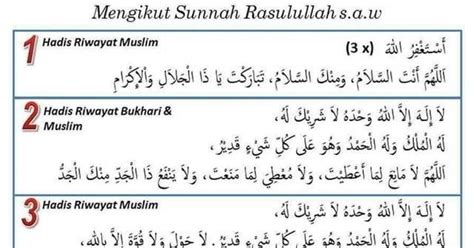 Mengikut Sunnah Rasulullah s.a.w
1 Hadis Riwayat Muslim
أَسْتَغْفِرُ اللهَ (3 x)
اَللَّهُمَّ أَنْتَ السَّلاَمُ، وَمِنْكَ السَّلاَمُ، تَبَارَكْتَ يَا ذَا الْجَلاَلِ وَالْإِكْرَامِ
2 Hadis Riwayat Bukhari &
Muslim
لاَ إِلَهَ إِلاَّ اللهُ وَحْدَهُ لاَ شَرِيْكَ لَهُ،
لَهُ الْمُلْكُ وَلَهُ الْحَمْدُ وَهُوَ عَلَى كُلِّ شَيْءٍ قَدِيْرُ،
اَللَّهُمَّ لاَ مَانِعَ لِمَا أَعْطَيْتَ، وَلاَ مُعْطِيَ لِمَا مَنَعْتَ، وَلاَ يَنْفَعُ ذَا الْجَدِّ مِنْكَ الْجَدُّ
3 Hadis Riwayat Muslim
لاَ إِلَهَ إِلاَّ اللهُ وَحْدَهُ لاَ شَرِيْكَ لَهُ،
لَهُ الْمُلْكُ وَلَهُ الْحَمْدُ وَهُوَ عَلَى كُلِّ شَيْءٍ قَدِيْرُ. لاَ حَوْلَ وَلاَ قُوَّةَ إِلاَّ بِاللهِ،